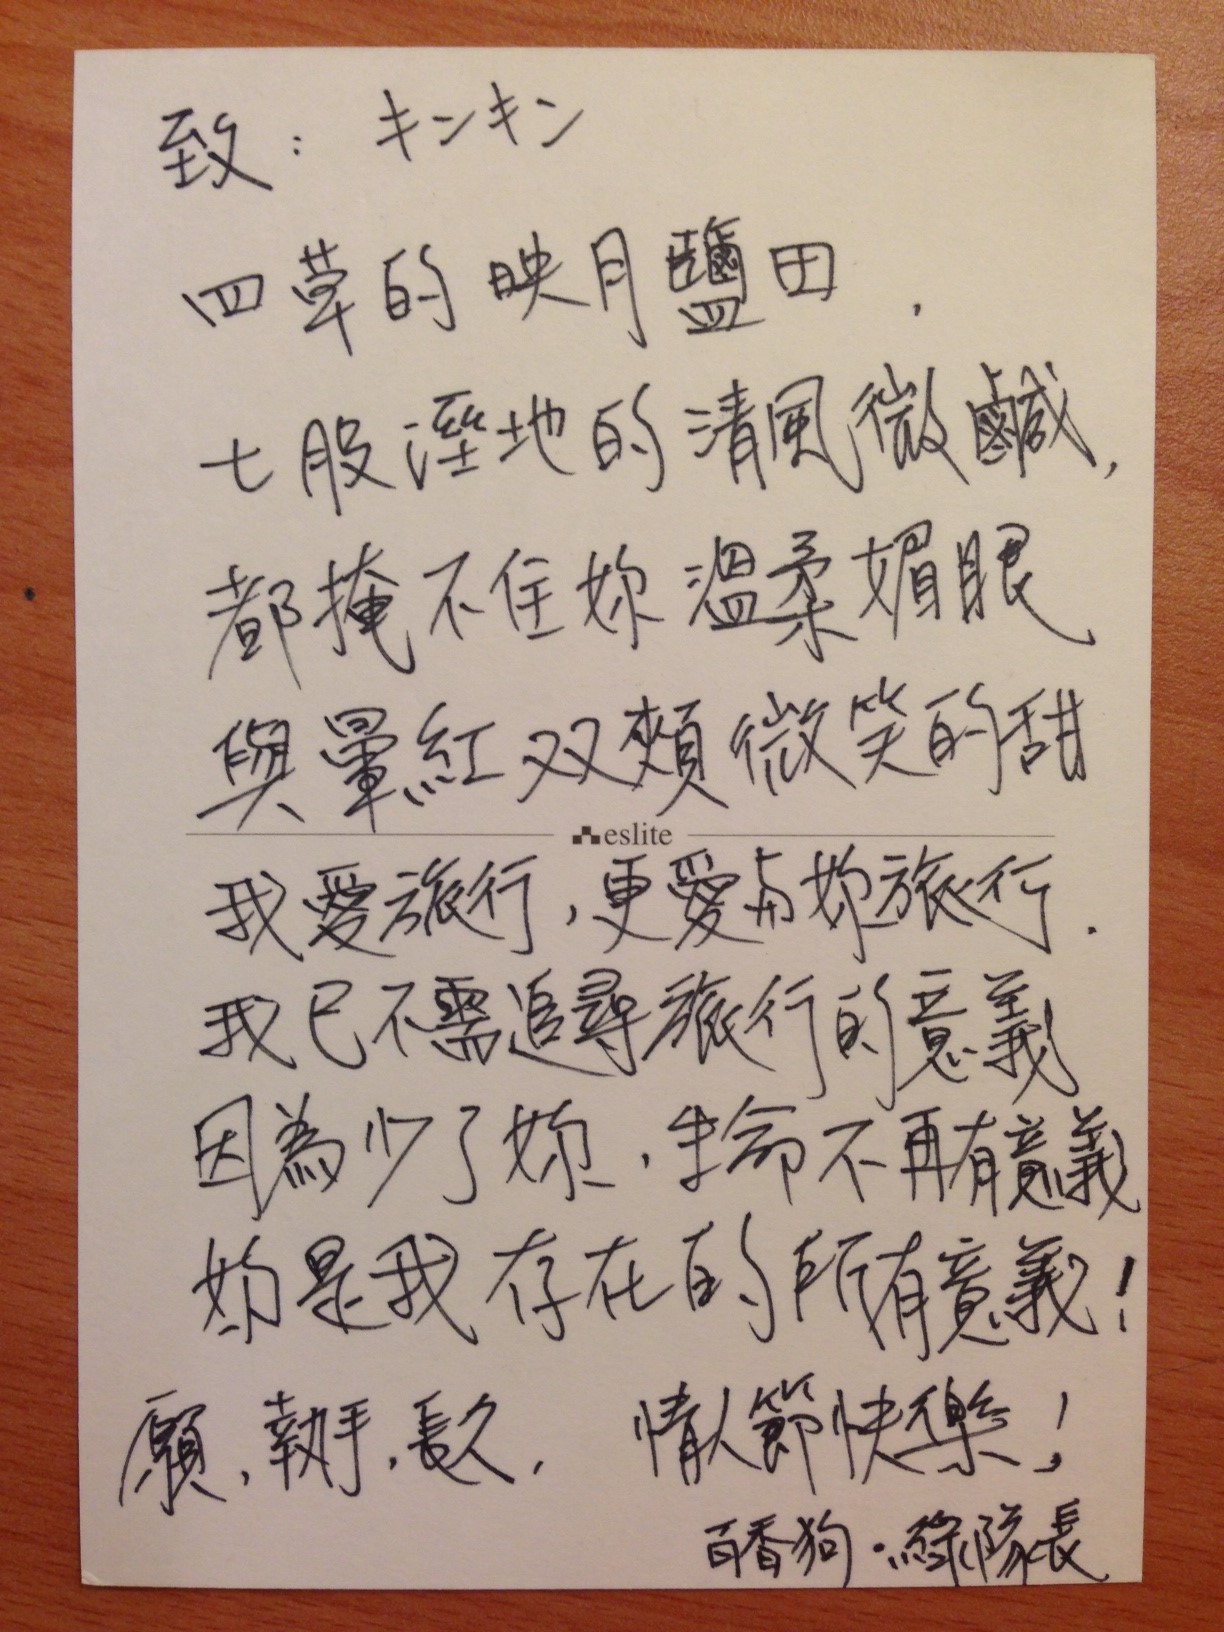 致：キンキン
四草的映月鹽田，
七股溼地的清風微鹹，
都掩不住妳溫柔媚眼
與暈紅双頰微笑的甜
eslite
我愛旅行，更愛与妳旅行．
我已不需追尋旅行的意義
因為少了妳，生命不再有意義
妳是我存在的所有意義！
願，執手，長久， 情人節快樂！
百香狗．綠隊長